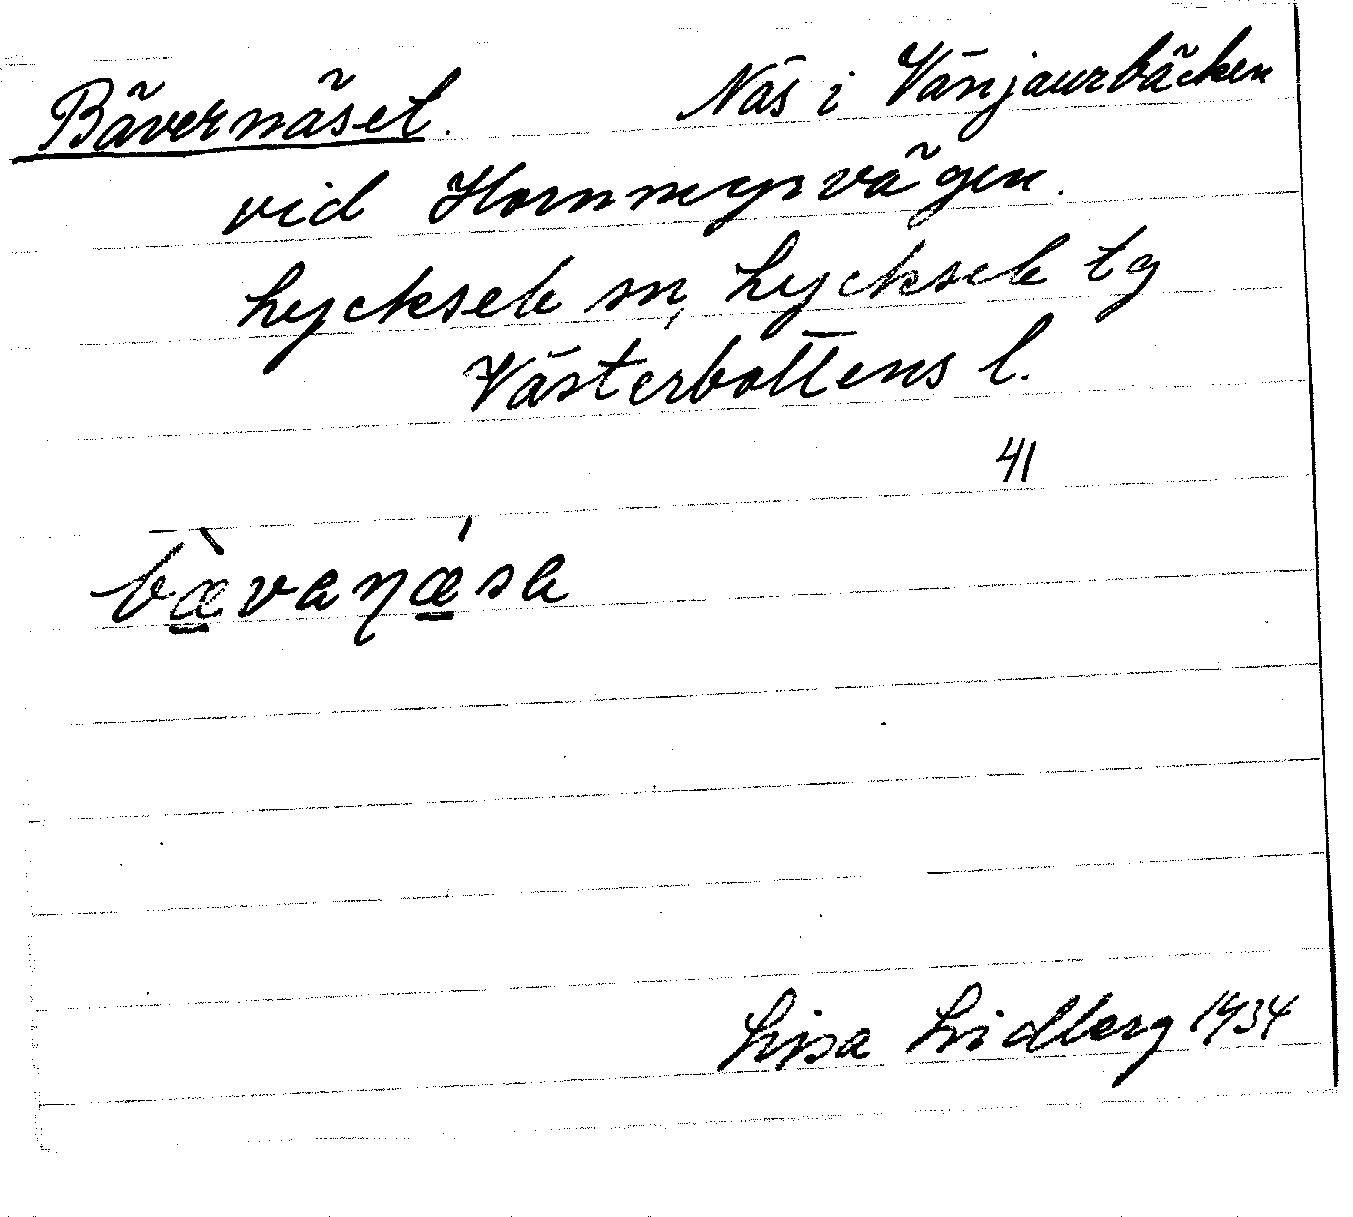 Bävernäset. Näs i Vänjaurbäcken
vid Hornmyrvägen.
Lycksele sn, Lycksele tg
Västerbottens l.
41
bæ̀vaŋǽsa
Lisa Lidberg 1934